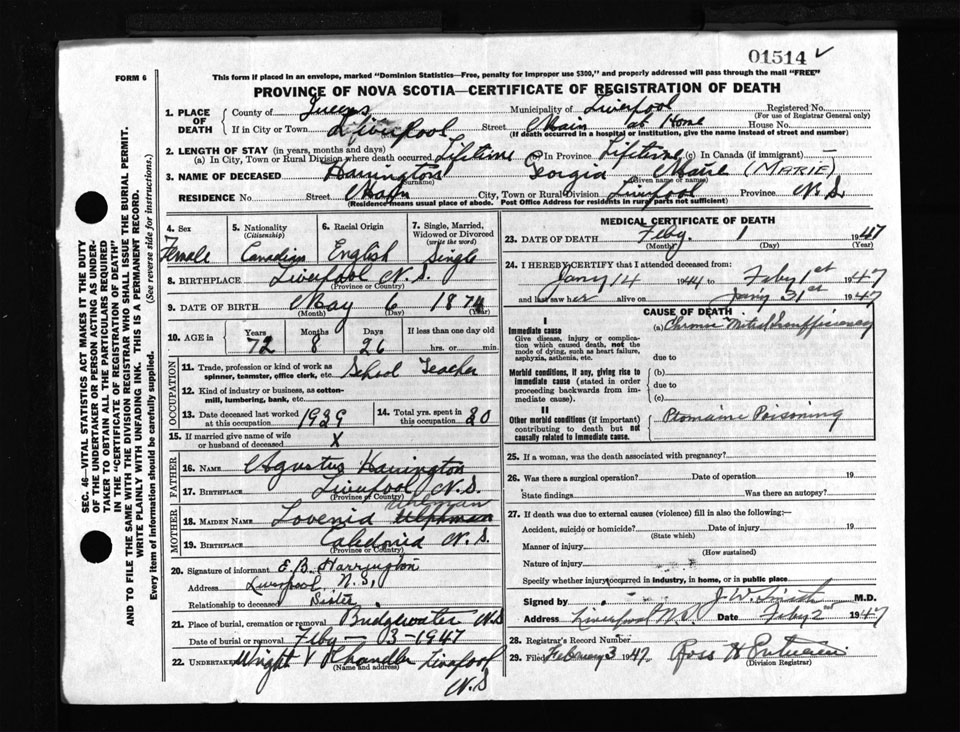 01514 ✓
FORM 6
This form if placed in an envelope, marked "Dominion Statistics—Free, penalty for improper use $300," and properly addressed will pass through the mail "FREE"
PROVINCE OF NOVA SCOTIA—CERTIFICATE OF REGISTRATION OF DEATH
SEC. 46—VITAL STATISTICS ACT MAKES IT THE DUTY
OF THE UNDERTAKER OR PERSON ACTING AS UNDER-
TAKER TO OBTAIN ALL THE PARTICULARS REQUIRED
IN THE "CERTIFICATE OF REGISTRATION OF DEATH"
AND TO FILE THE SAME WITH THE DIVISION REGISTRAR WHO SHALL ISSUE THE BURIAL PERMIT.
WRITE PLAINLY WITH UNFADING INK. THIS IS A PERMANENT RECORD.
Every item of information should be carefully supplied. (See reverse side for instructions.)
1. PLACE OF DEATH
County of Queens Municipality of Liverpool Registered No.
(For use of Registrar General only)
If in City or Town Liverpool Street Main at Home House No.
(If death occurred in a hospital or institution, give the name instead of street and number)
2. LENGTH OF STAY (in years, months and days)
(a) In City, Town or Rural Division where death occurred Lifetime In Province Lifetime (c) In Canada (if immigrant) —
3. NAME OF DECEASED Harrington Georgia Marie (MARIE)
(Surname) (Given name or names)
RESIDENCE No. Street Main City, Town or Rural Division Liverpool Province N.S
(Residence means usual place of abode. Post Office Address for residents in rural parts not sufficient)
4. Sex Female
5. Nationality (Citizenship) Canadian
6. Racial Origin English
7. Single, Married, Widowed or Divorced (write the word) Single
8. BIRTHPLACE Liverpool N.S.
(Province or Country)
9. DATE OF BIRTH May 6 1874
(Month) (Day) (Year)
10. AGE in Years 72 Months 8 Days 26 If less than one day old hrs. or min.
OCCUPATION
11. Trade, profession or kind of work as spinner, teamster, office clerk, etc. School Teacher
12. Kind of industry or business, as cotton-mill, lumbering, bank, etc.
13. Date deceased last worked at this occupation 1929
14. Total yrs. spent in this occupation 30
15. If married give name of wife or husband of deceased X
FATHER
16. NAME Agustus Harrington
17. BIRTHPLACE Liverpool N.S.
(Province or Country)
MOTHER
18. MAIDEN NAME Lovenid
19. BIRTHPLACE Caledonia N.S.
(Province or Country)
20. Signature of informant E.B. Harrington
Address Liverpool, N.S,
Relationship to deceased Sister
21. Place of burial, cremation or removal Bridgewater NS
Date of burial or removal Feby — 3 - 1947
22. UNDERTAKER Wright V Chandler Liverpool
(Name and address)
N.S
MEDICAL CERTIFICATE OF DEATH
23. DATE OF DEATH Feby. 1 1947
(Month) (Day) (Year)
24. I HEREBY CERTIFY that I attended deceased from:
Jany 14 1944 to Feby 1st 1947
and last saw her alive on Jany 31st 1947
CAUSE OF DEATH
I
Immediate cause
Give disease, injury or complication which caused death, not the mode of dying, such as heart failure, asphyxia, asthenia, etc.
(a) Chronic Mitral Insufficiency
due to
Morbid conditions, if any, giving rise to immediate cause (stated in order proceeding backwards from immediate cause).
(b)
due to
(c)
II
Other morbid conditions (if important) contributing to death but not causally related to immediate cause.
Ptomaine Poisoning
25. If a woman, was the death associated with pregnancy?
26. Was there a surgical operation? Date of operation 19
State findings Was there an autopsy?
27. If death was due to external causes (violence) fill in also the following:—
Accident, suicide or homicide? Date of injury 19
(State which)
Manner of injury
(How sustained)
Nature of injury
Specify whether injury occurred in industry, in home, or in public place
Signed by J.W. Smith M.D.
Address Liverpool N.S. Date Feby 2nd 1947
28. Registrar's Record Number
29. Filed February 3 1947 Ross H
(Division Registrar)